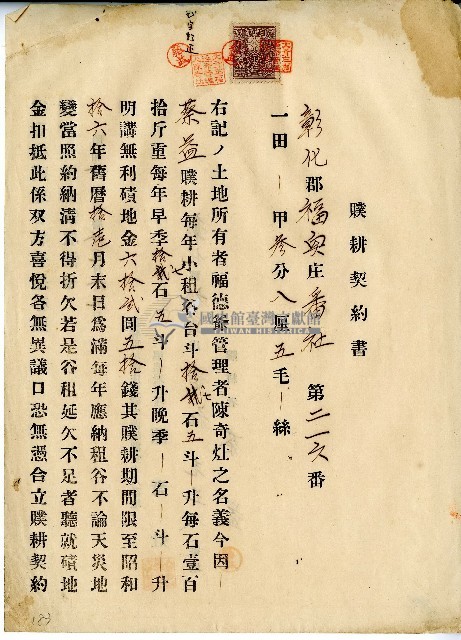 贌耕契約書
彰化郡福興庄番社 第二一六番
一田 — 甲叁分八厘五毛—絲
右記ノ土地所有者福德爺管理者陳奇灶之名義今因—
蔡益贌耕每年小租谷台斗拾貳石五斗—升每石壹百
拾斤重每年早季拾貳石五斗—升晚季—石—斗—升
明講無利磧地金六拾貳圓五拾錢其贌耕期間限至昭和
拾六年舊曆拾壱月末日為滿每年應納租谷不論天災地
變當照約納清不得折欠若是谷租延欠不足者聽就磧地
金扣抵此係双方喜悅各無異議口恐無憑合立贌耕契約
國史館臺灣文獻館
TAIWAN HISTORICA
(8)